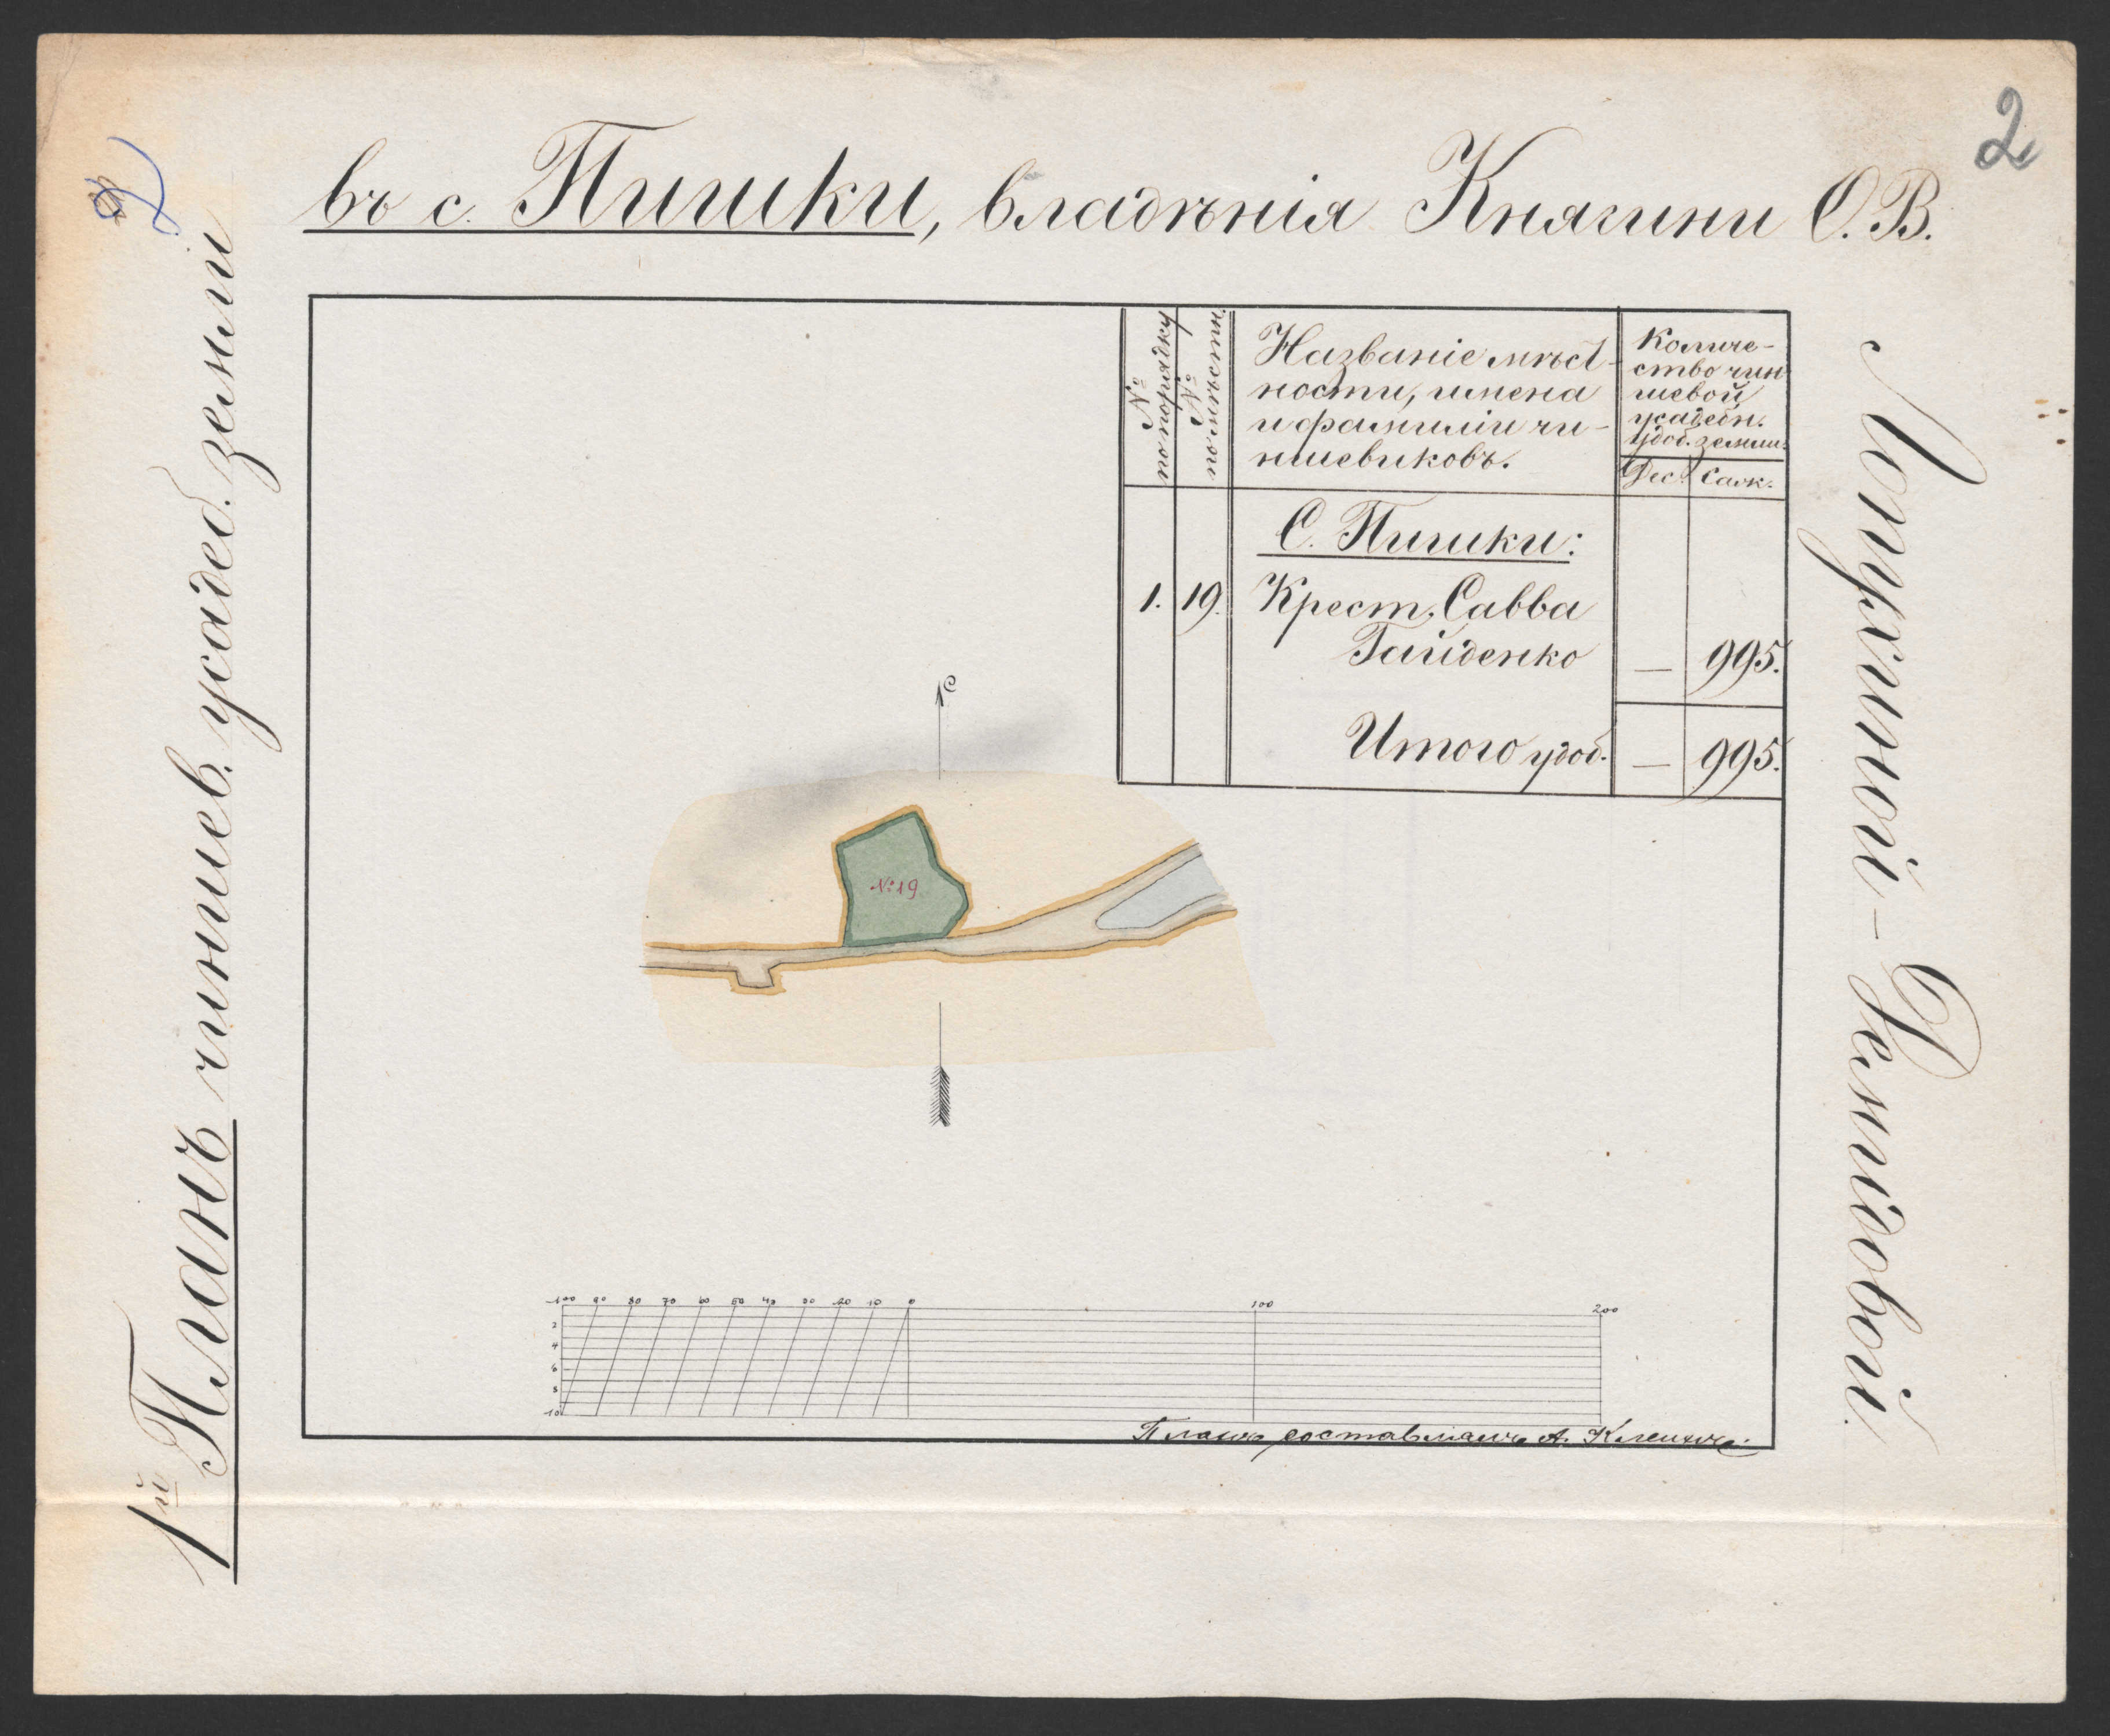 2
2
1й Планъ чиншев. усадеб. земли
въ с. Пишки, владѣнія Княгини О. В.
Лопухиной-Демидовой.
№ по порядку
№ по мѣстн.
Названіе мѣст-
ности, имена
и фамиліи чи-
ншевиковъ.
Количе-
ство чин
шевой
усадебн.
удоб. земли.
Дес. Саж.
С. Пишки:
1. 19. Крест. Савва
Гайденко — 995.
Итого удоб. — 995.
С
№19.
100 90 80 70 60 50 40 30 20 10 0 100 200
2
4
6
8
10
Планъ составлялъ А.